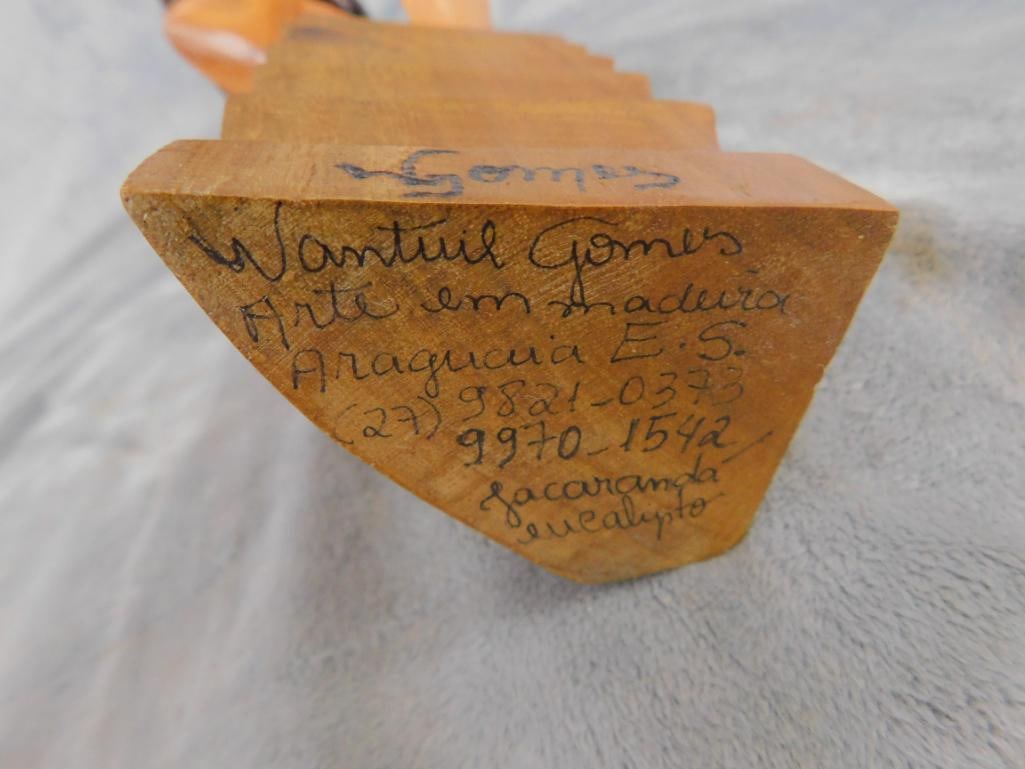 Gomes
Wantuil Gomes
Arte em madeira
Araguaia E.S.
(27) 9821-0373
9970-1542
Jacaranda
eucalypto